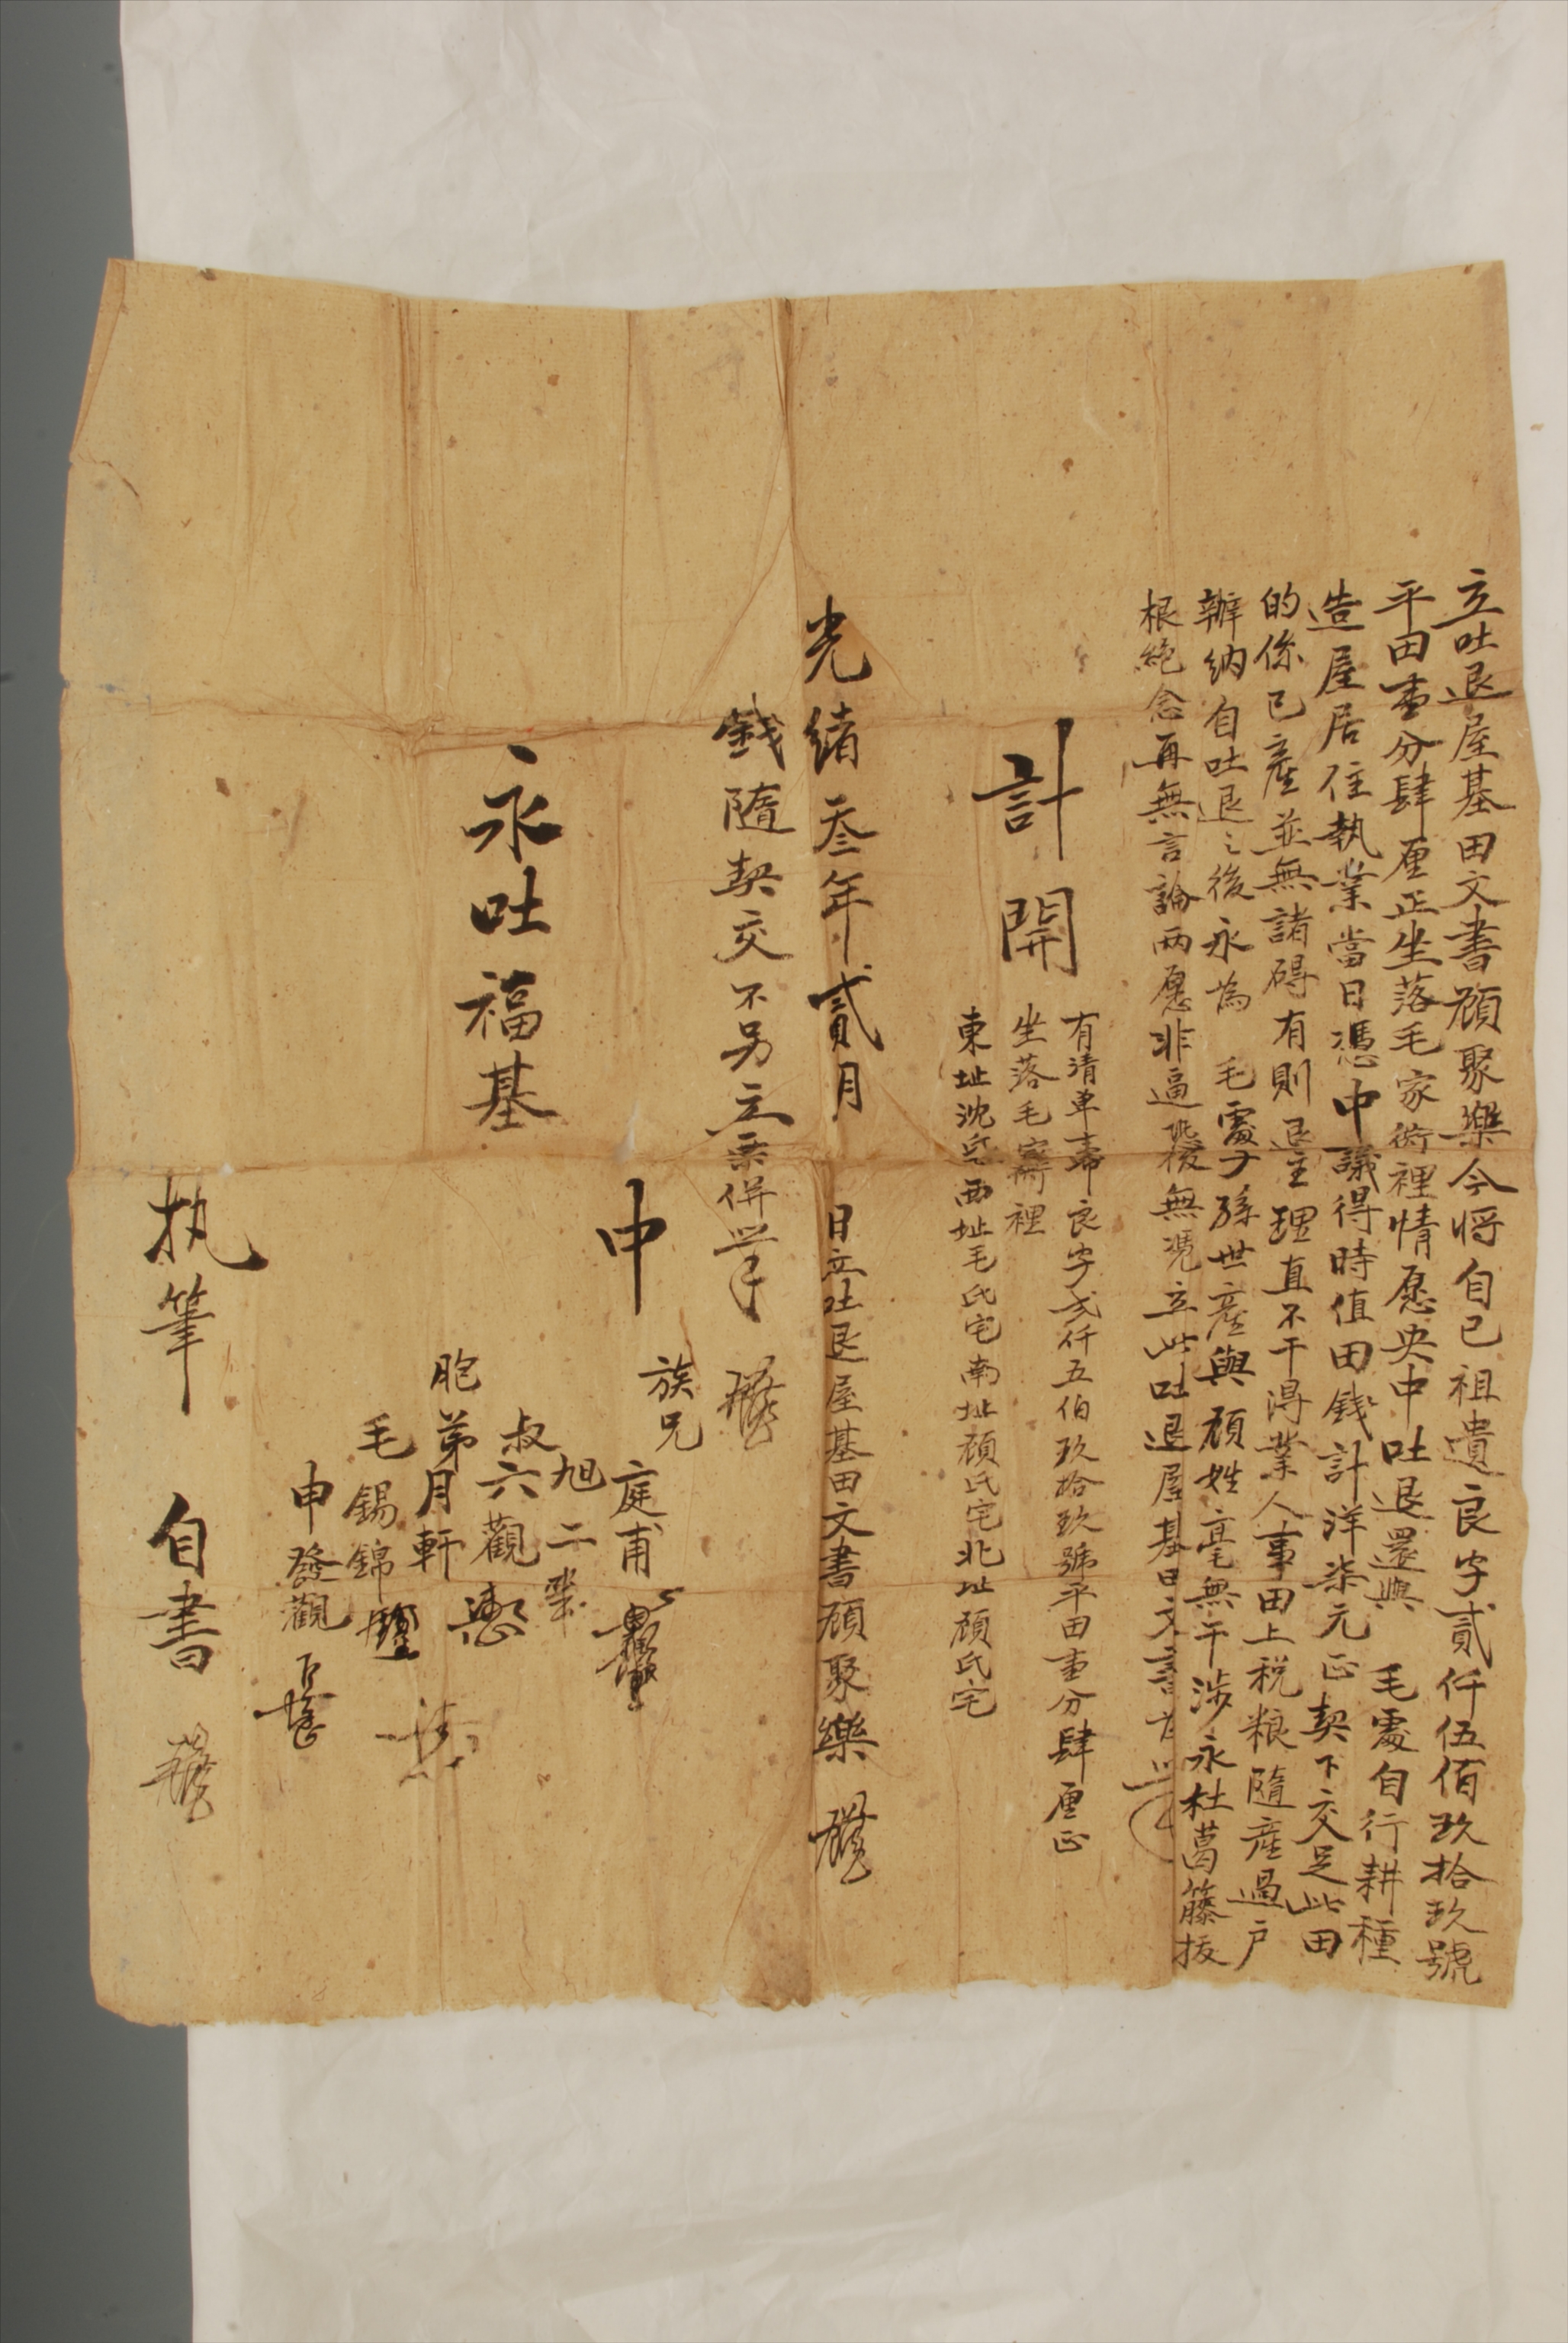 立吐退屋基田文書顔聚樂今將自己祖遺良字貳仟伍佰玖拾玖號
平田壹分肆厘正坐落毛家衖裡情愿央中吐退還與毛處自行耕種
造屋居住執業當日憑中議得時值田錢計洋柒元正契下交足此田
的係己產並無諸碍有則退主理直不干得業人事田上税粮隨產過户
辦納自吐退之後永為毛處子孫世產與顔姓毫無干涉永杜葛籐拔
根絶念再無言論兩愿非逼恐後無憑立此吐退屋基田文書為
計開
有清单壹帋良字弍仟五伯玖拾玖號平田壹分肆厘正
坐落毛家衖裡
東址沈氏西址毛氏宅南址顔氏宅北址顔氏宅
光緒叁年貳月日立吐退屋基田文書顔聚樂
錢隨契交不另立票併筆
中
族兄庭甫
旭二
叔六觀
胞弟月軒
毛錫錦
申發觀
永吐福基
执筆 自書